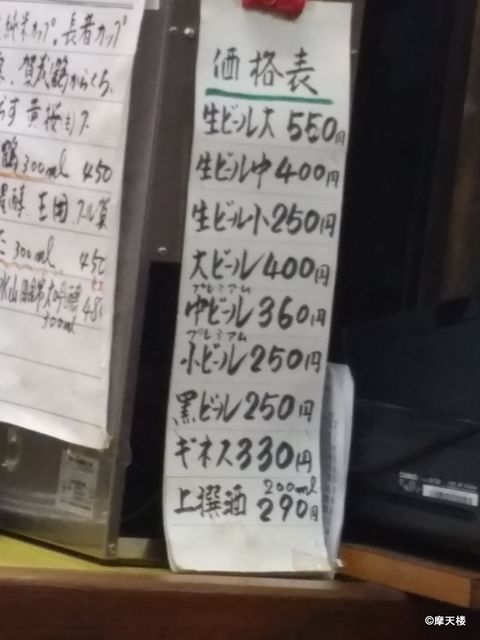 純米カップ。長者カップ
賀茂鶴からくち
黄桜
鶴300ml 450
300ml 45
300ml
価格表
生ビール大 550円
生ビール中 400円
生ビール小 250円
大ビール 400円
プレミアム
中ビール 360円
プレミアム
小ビール 250円
黒ビール 250円
ギネス 330円
上撰酒 200ml 290円
©摩天楼